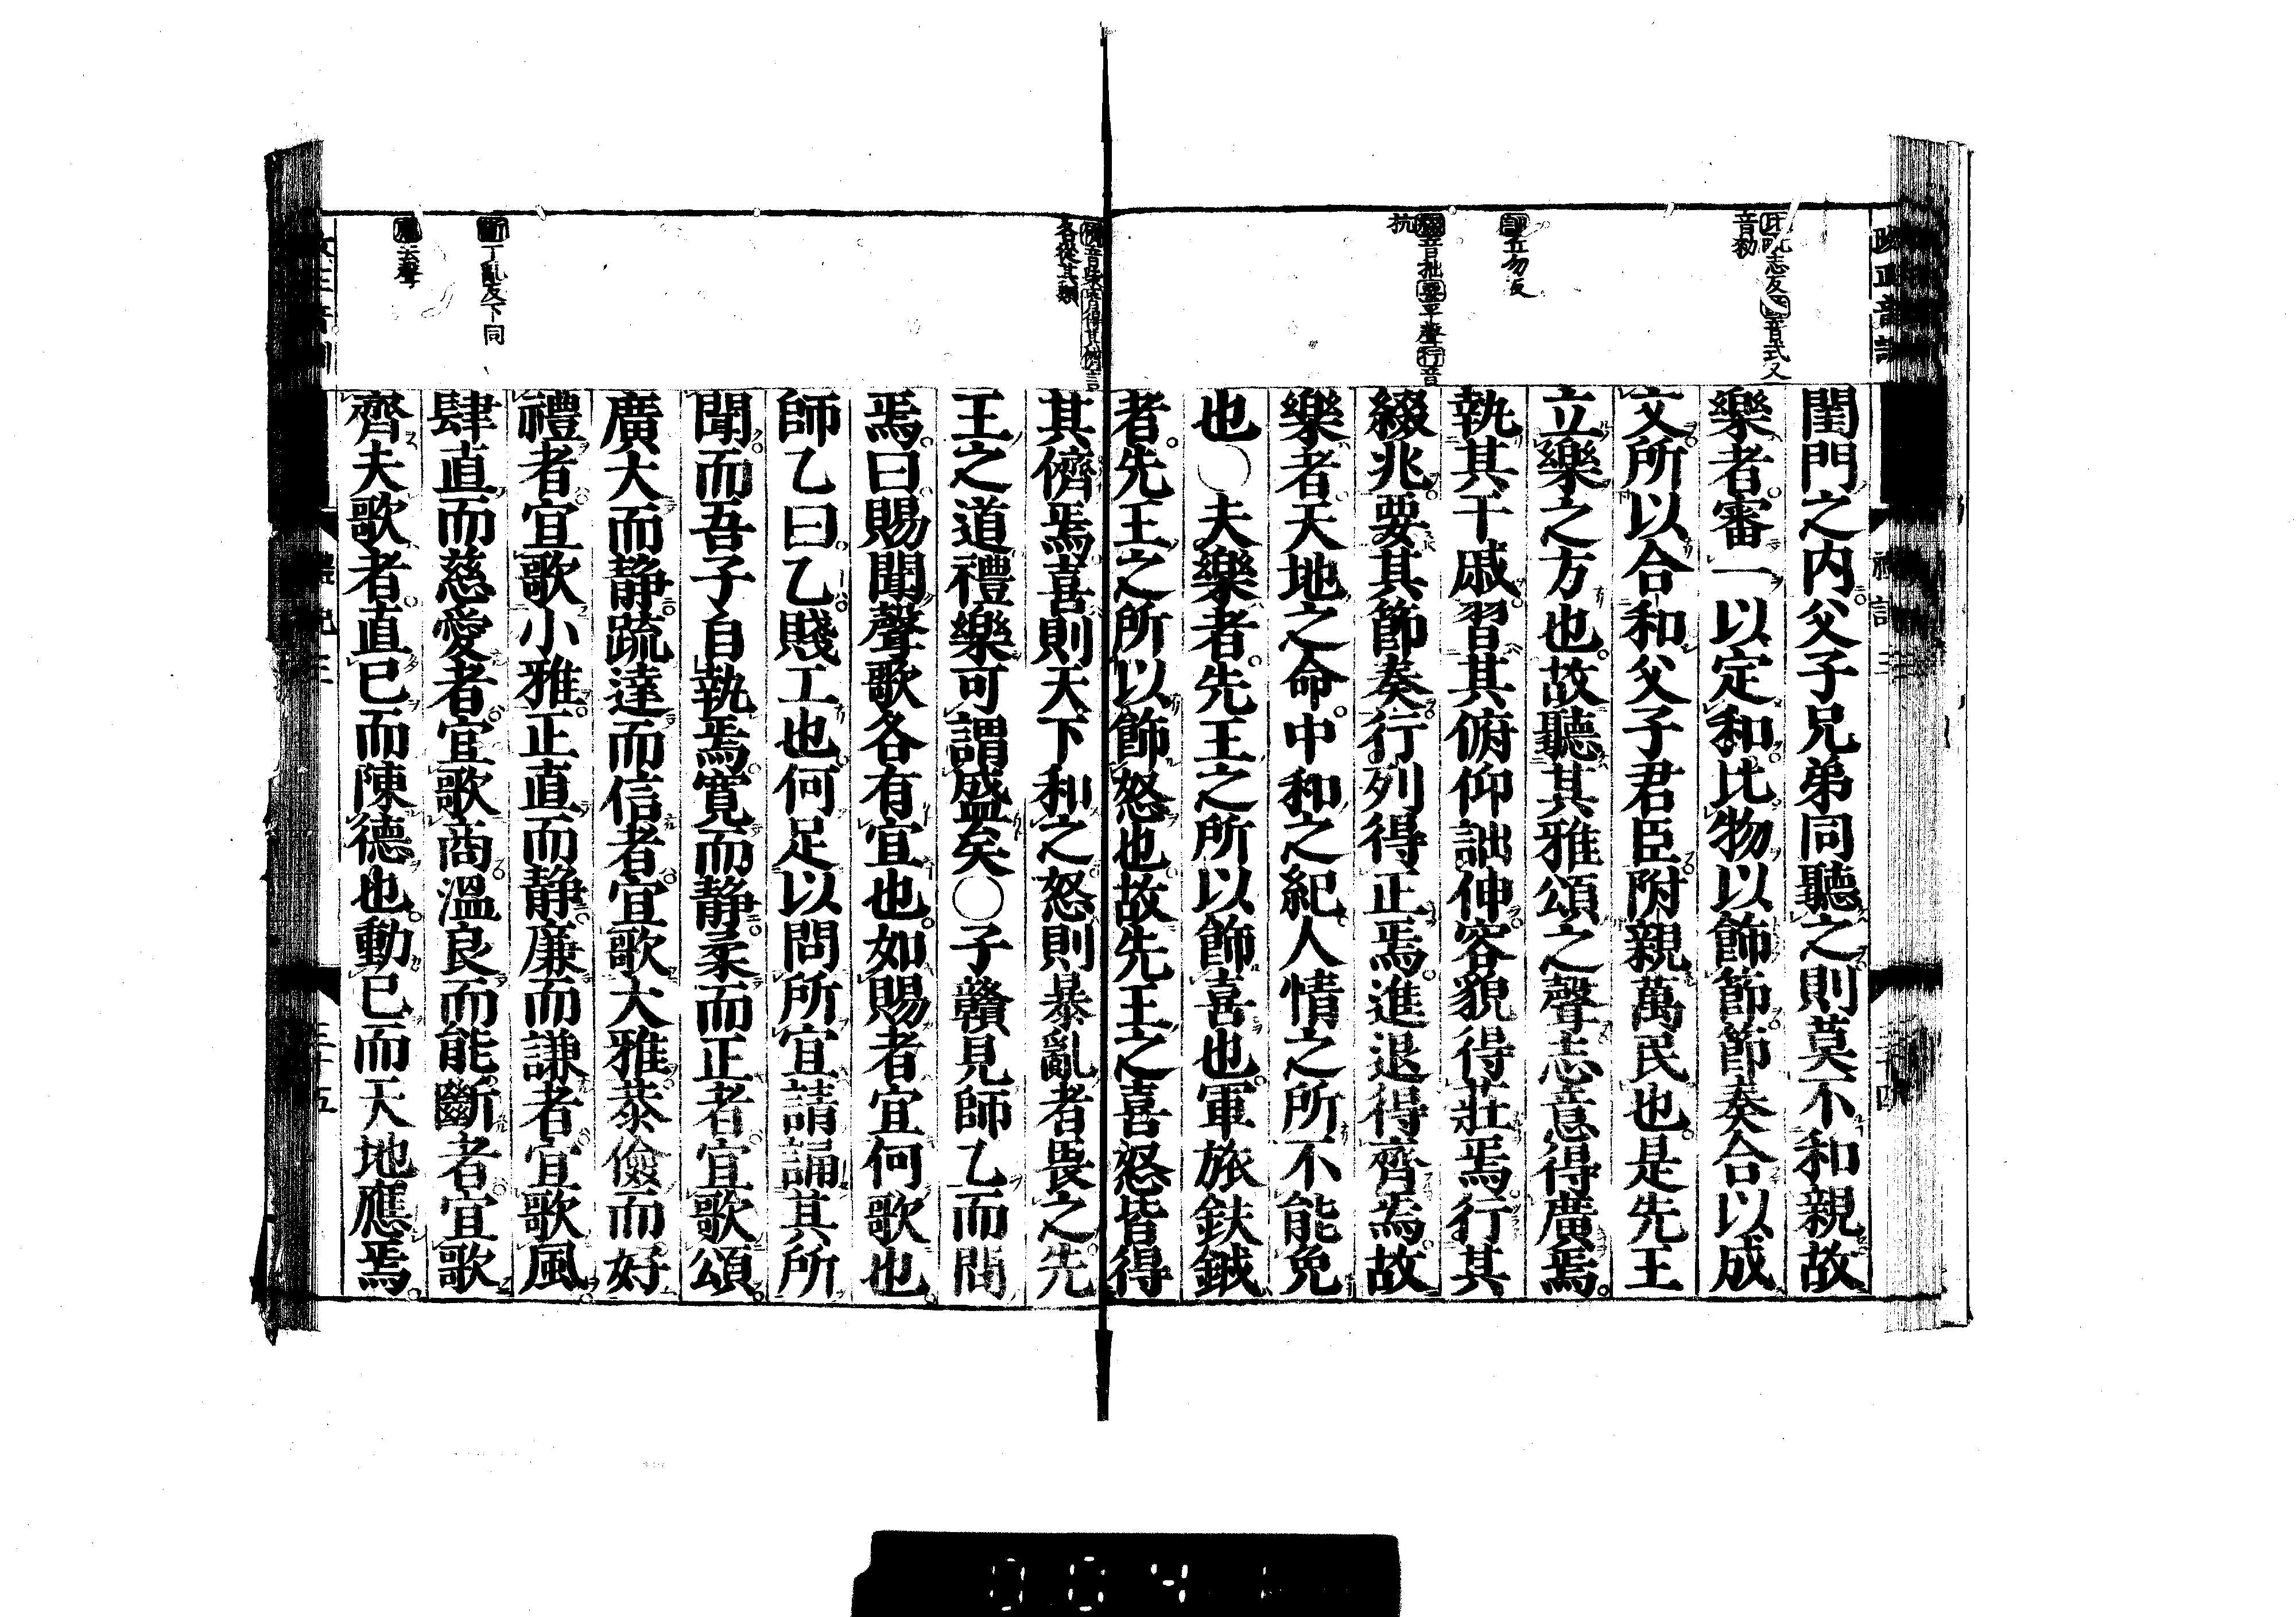 閨門之内父子兄弟同聽之則莫不和親故
樂者審一以定和比物以飾節節奏合以成
文所以合和父子君臣附親萬民也是先王
立樂之方也故聽其雅頌之聲志意得廣焉
執其干戚習其俯仰詘伸容貌得莊焉行其
綴兆要其節奏行列得正焉進退得齊焉故
樂者天地之命中和之紀人情之所不能免
也○夫樂者先王之所以飾喜也軍旅鈇鉞
者先王之所以飾怒也故先王之喜怒皆得
其儕焉喜則天下和之怒則暴亂者畏之先
王之道禮樂可謂盛矣○子贛見師乙而問
焉曰賜聞聲歌各有宜也如賜者宜何歌也
師乙曰乙賤工也何足以問所宜請誦其所
聞而吾子自執焉寬而静柔而正者宜歌頌
廣大而静疏達而信者宜歌大雅恭儉而好
禮者宜歌小雅正直而静廉而謙者宜歌風
肆直而慈愛者宜歌商溫良而能斷者宜歌
齊夫歌者直己而陳德也動己而天地應焉
志反音式又
音勑
五勿反
音拙要平聲行音
抗
各從其類
斷丁亂反下同
去聲